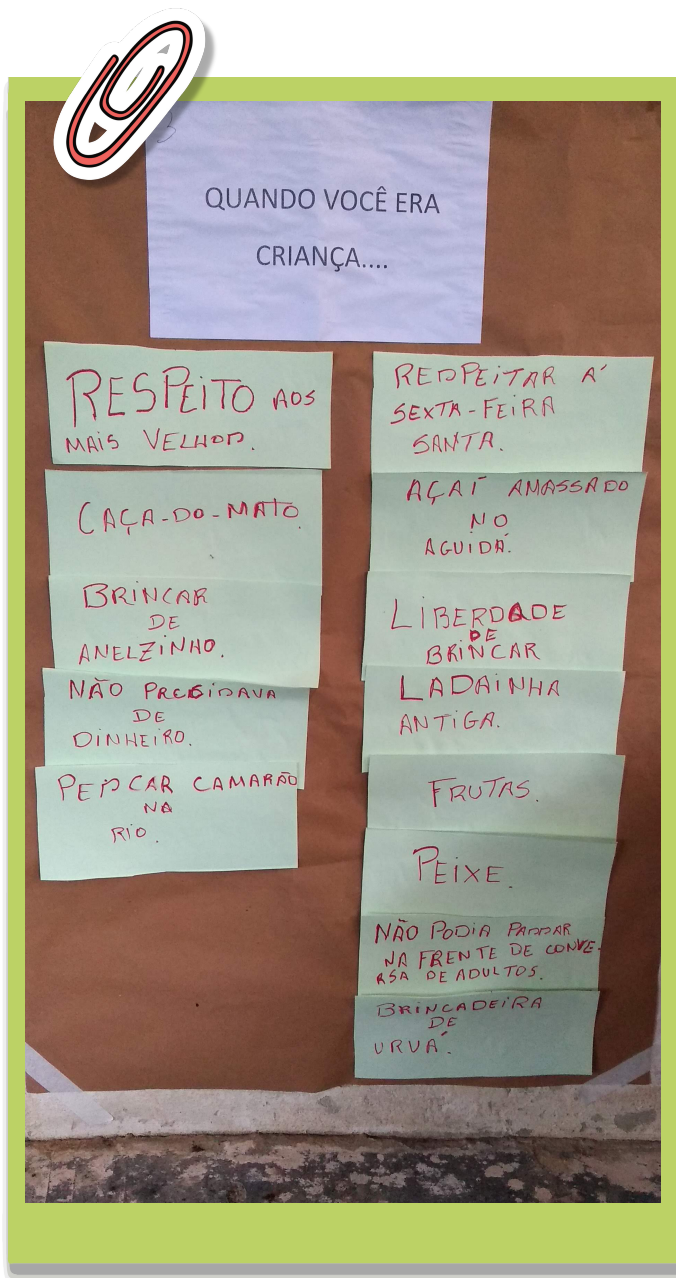 3
QUANDO VOCÊ ERA
CRIANÇA....
RESPEITO AOS
MAIS VELHOS.
CAÇA-DO-MATO.
BRINCAR
DE
ANELZINHO.
NÃO PRECISAVA
DE
DINHEIRO.
PESCAR CAMARÃO
NA
RIO.
RESPEITAR Á
SEXTA-FEIRA
SANTA.
AÇAÍ AMASSADO
NO
AGUIDÁ.
LIBERDADE
DE
BRINCAR
LADAINHA
ANTIGA.
FRUTAS.
PEIXE.
NÃO PODIA PASSAR
NA FRENTE DE CONVE-
RSA DE ADULTOS.
BRINCADEIRA
DE
URUÁ.